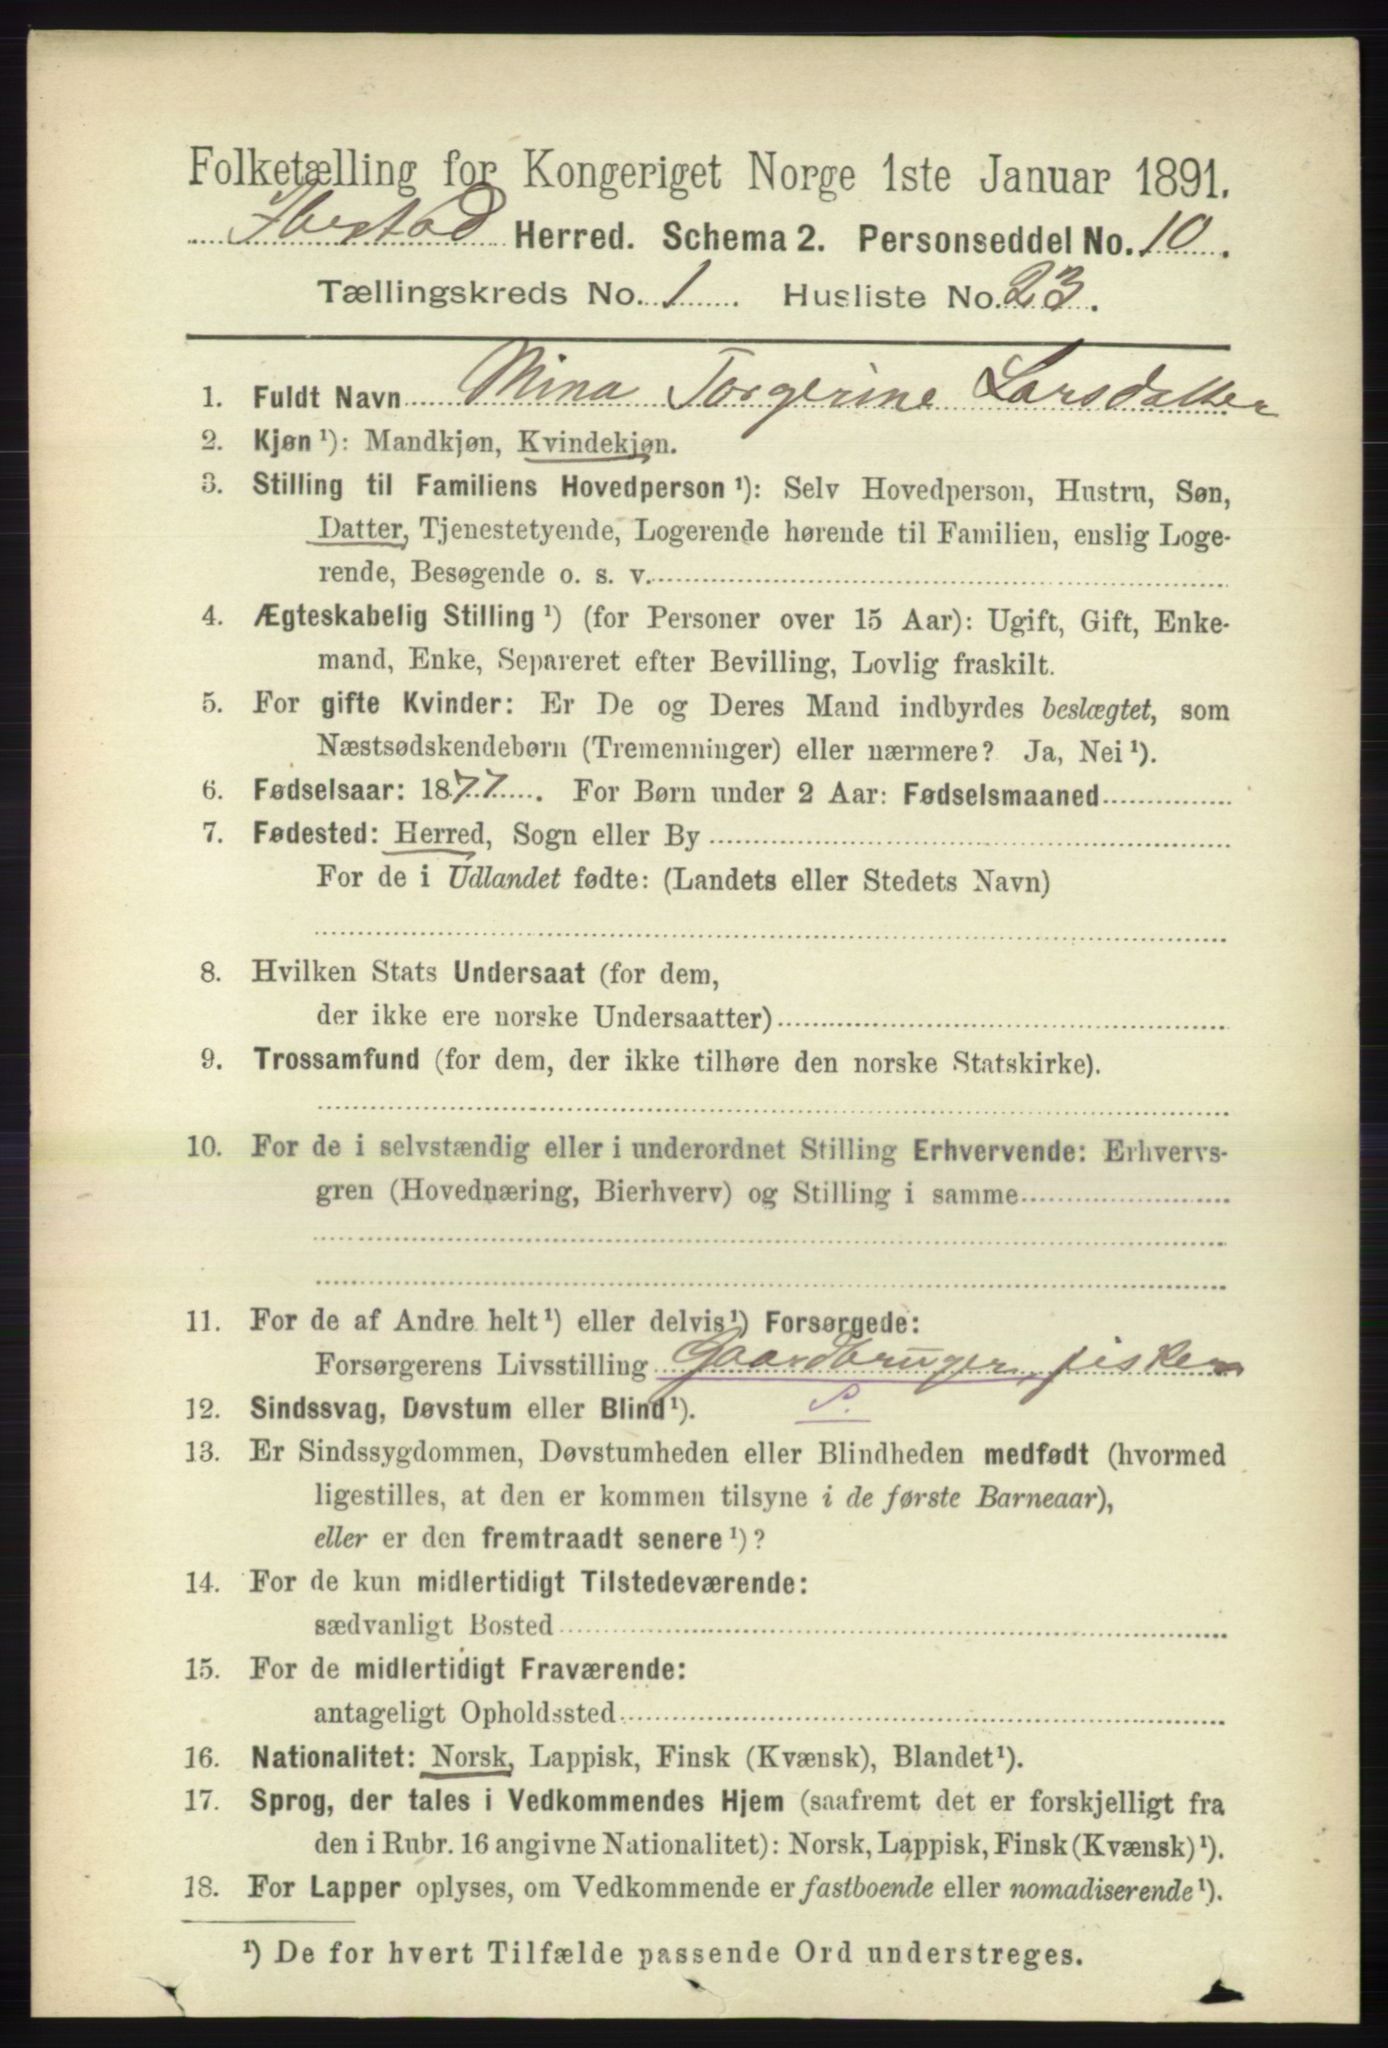 Folketælling for Kongeriget Norge 1ste Januar 1891.
Ibestad Herred. Schema 2. Personseddel No. 10.
Tællingskreds No. 1. Husliste No. 23.
1. Fuldt Navn Mina Torgerine Larsdatter
2. Kjøn ¹): Mandkjøn, Kvindekjøn.
3. Stilling til Familiens Hovedperson ¹): Selv Hovedperson, Hustru, Søn,
Datter, Tjenestetyende, Logerende hørende til Familien, enslig Loge-
rende, Besøgende o. s. v.
4. Ægteskabelig Stilling ¹) (for Personer over 15 Aar): Ugift, Gift, Enke-
mand, Enke, Separeret efter Bevilling, Lovlig fraskilt.
5. For gifte Kvinder: Er De og Deres Mand indbyrdes beslægtet, som
Næstsødskendebørn (Tremenninger) eller nærmere? Ja, Nei ¹).
6. Fødselsaar: 1877. For Børn under 2 Aar: Fødselsmaaned
7. Fødested: Herred, Sogn eller By
For de i Udlandet fødte: (Landets eller Stedets Navn)
8. Hvilken Stats Undersaat (for dem,
der ikke ere norske Undersaatter)
9. Trossamfund (for dem, der ikke tilhøre den norske Statskirke).
10. For de i selvstændig eller i underordnet Stilling Erhvervende: Erhvervs-
gren (Hovednæring, Bierhverv) og Stilling i samme
11. For de af Andre helt ¹) eller delvis ¹) Forsørgede:
Forsørgerens Livsstilling Gaardbruger, fisker
12. Sindssvag, Døvstum eller Blind ¹). S.
13. Er Sindssygdommen, Døvstumheden eller Blindheden medfødt (hvormed
ligestilles, at den er kommen tilsyne i de første Barneaar),
eller er den fremtraadt senere ¹)?
14. For de kun midlertidigt Tilstedeværende:
sædvanligt Bosted
15. For de midlertidigt Fraværende:
antageligt Opholdssted
16. Nationalitet: Norsk, Lappisk, Finsk (Kvænsk), Blandet ¹).
17. Sprog, der tales i Vedkommendes Hjem (saafremt det er forskjelligt fra
den i Rubr. 16 angivne Nationalitet): Norsk, Lappisk, Finsk (Kvænsk) ¹).
18. For Lapper oplyses, om Vedkommende er fastboende eller nomadiserende ¹).
¹) De for hvert Tilfælde passende Ord understreges.